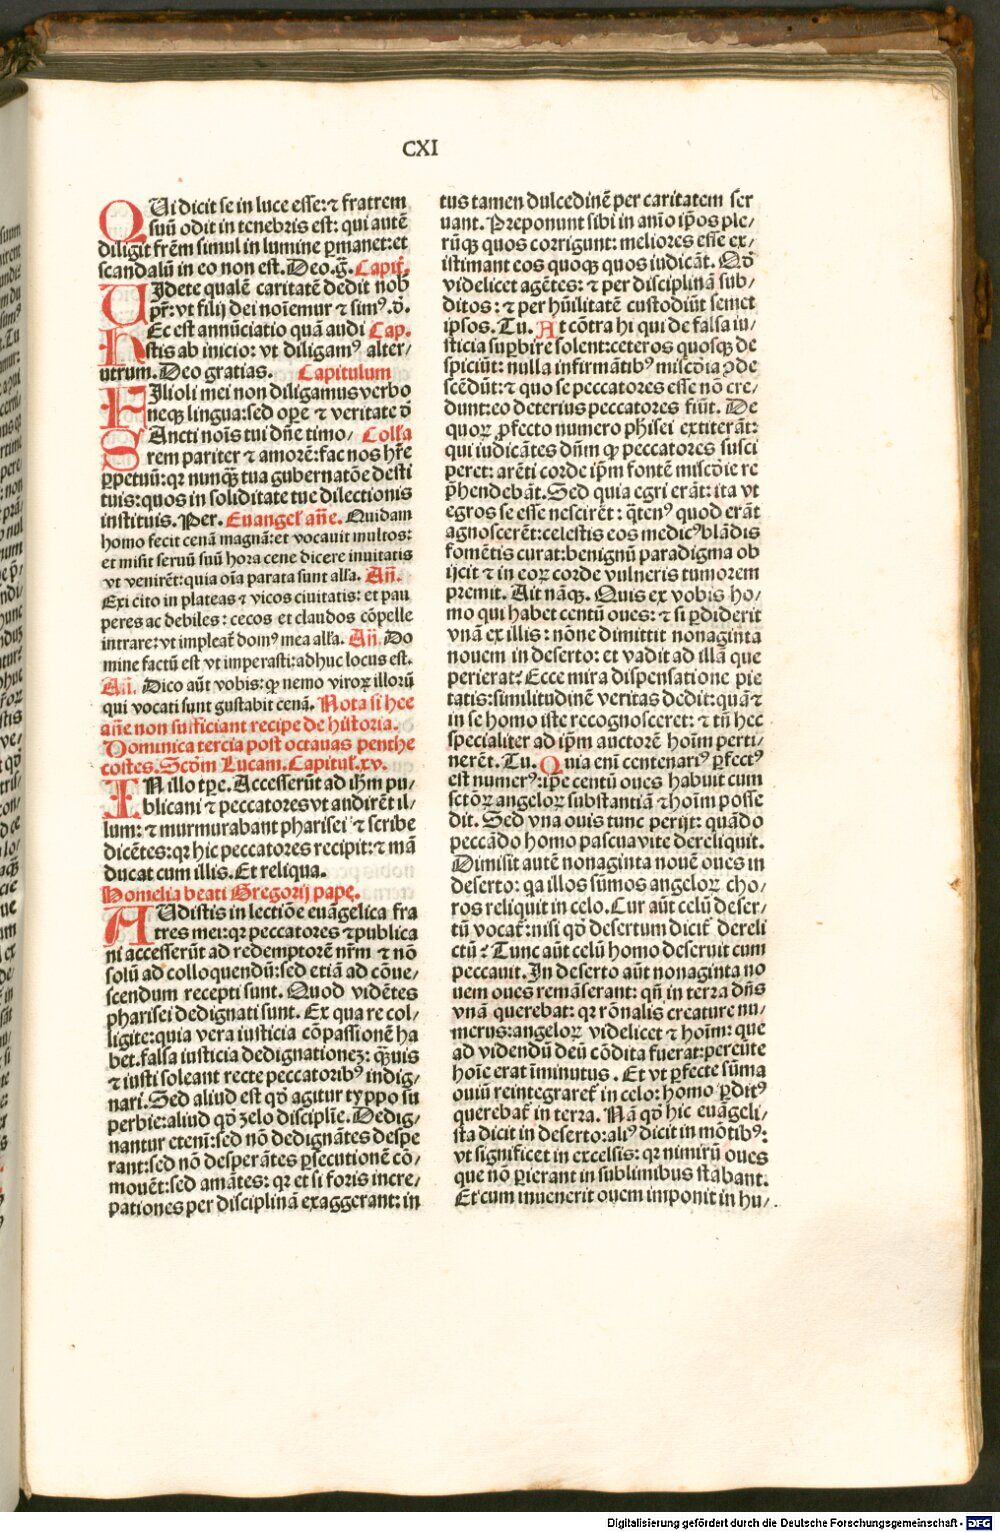 CXI
QUi dicit se in luce esse: ⁊ fratrem
suū odit in tenebris est: qui autē
diligit frēm simul in lumine ꝑmanet: et
scandalū in eo non est. Deo. g̃. Capit̃.
UIdete qualē caritatē dedit nob
pr̄: vt filij dei noīemur ⁊ simꝰ. ð.
HEc est annūciatio quā audi Cap.
stis ab inicio: vt diligamꝰ alter⸗
utrum. Deo gratias. Capitulum
FIlioli mei non diligamus verbo
neqꝫ lingua: sed oꝑe ⁊ veritate ð
SAncti noīs tui dn̄e timo⸗ Colľa
rem pariter ⁊ amorē: fac nos hr̄e
ꝑpetuū: qꝛ nunqꝫ̄ tua gubernatōe desti
tuis: quos in soliditate tue dilectionis
instituis. Per. Euangeľ an̄e. Quidam
homo fecit cenā magnā: et vocauit multos:
et misit seruū suū hora cene dicere inuitatis
vt venirēt: quia oīa parata sunt alľa. An̄.
Exi cito in plateas ⁊ vicos ciuitatis: et pau
peres ac debiles: cecos et claudos cōpelle
intrare: vt impleat̄ domꝰ mea alľa. An̄. Do
mine factū est vt imperasti: adhuc locus est.
An̄. Dico aūt vobis: qꝫ nemo viroꝝ illorū
qui vocati sunt gustabit cenā. Nota si hee
an̄e non sufficiant recipe de historia.
Dominica tercia post octauas penthe
costes. Scōm Lucam. Capituľ. xv.
IN illo tꝑe. Accesserūt ad ihm̄ pu⸗
blicani ⁊ peccatores vt audirēt il⸗
lum: ⁊ murmurabant pharisei ⁊ scribe
dicētes: qꝛ hic peccatores recipit: ⁊ mā
ducat cum illis. Et reliqua.
Homelia beati Gregorij pape.
AUdistis in lectiōe euāgelica fra
tres mei: qꝛ peccatores ⁊ publica
ni accesserūt ad redemptorē nr̄m ⁊ nō
solū ad colloquendū: sed etiā ad cōue⸗
scendum recepti sunt. Quod vidētes
pharisei dedignati sunt. Ex qua re col⸗
ligite: quia vera iusticia cōpassionē ha
bet. falsa iusticia dedignationeꝫ: qꝫ̄uis
⁊ iusti soleant recte peccatoribꝰ indig⸗
nari. Sed aliud est qð agitur typpo su
perbie: aliud qð zelo disciplīe. Dedig⸗
nantur etenī: sed nō dedignātes despe
rant: sed nō desperātes ꝑsecutionē cō⸗
mouēt: sed amātes: qꝛ et si foris incre⸗
pationes per disciplinā exaggerant: in
tus tamen dulcedinē per caritatem ser
uant. Preponunt sibi in anīo ip̄os ple⸗
rūqꝫ quos corrigunt: meliores esse ex⸗
istimant eos quoqꝫ quos iudicāt. Qð
videlicet agētes: ⁊ per disciplinā sub⸗
ditos: ⁊ per hūilitatē custodiūt semet
ipsos. Tu. At cōtra hi qui de falsa iu⸗
sticia suꝑbire solent: ceteros quosqꝫ de
spiciūt: nulla infirmātibꝰ misc̄dia ꝯde
scēdūt: ⁊ quo se peccatores esse nō cre⸗
dunt: eo deterius peccatores fiūt. De
quoꝝ ꝓfecto numero phīsei extiterāt:
qui iudicātes dn̄m qꝫ peccatores susci
peret: arēti corde ip̄m fontē misc̄die re
p̄hendebāt. Sed quia egri erāt: ita vt
egros se esse nescirēt: q̄tenꝰ quod erāt
agnoscerēt: celestis eos medicꝰ blādis
fomētis curat: benignū paradigma ob
ijcit ⁊ in eoꝝ corde vulneris tumorem
premit. Ait nāqꝫ. Quis ex vobis ho⸗
mo qui habet centū oues: ⁊ si ꝑdiderit
vnā ex illis: nōne dimittit nonaginta
nouem in deserto: et vadit ad illā que
perierat? Ecce mira dispensatione pie
tatis: similitudinē veritas dedit: quā ⁊
in se homo iste recognosceret: ⁊ tn̄ hec
specialiter ad ip̄m auctorē hoīm perti⸗
nerēt. Tu. Quia eni centenariꝰ ꝑfectꝰ
est numerꝰ: ip̄e centū oues habuit cum
sctōꝝ angeloꝝ substantiā ⁊ hoīm posse
dit. Sed vna ouis tunc perijt: quādo
peccādo homo pascua vite dereliquit.
Dimisit autē nonaginta nouē oues in
deserto: qa illos sūmos angeloꝝ cho⸗
ros reliquit in celo. Cur aūt celū deser⸗
tū vocat̄: nisi qð desertum dicit̄ dereli
ctū? Tunc aūt celū homo deseruit cum
peccauit. In deserto aūt nonaginta no
uem oues remāserant: qn̄ in terra dn̄s
vnā querebat: qꝛ rōnalis creature nu⸗
merus: angeloꝝ videlicet ⁊ hoīm: que
ad videndū deū cōdita fuerat: pereūte
hoīe erat īminutus. Et vt ꝑfecte sūma
ouiū reintegraret̄ in celo: homo ꝑditꝰ
querebat̄ in terra. Nā qð hic euāgeli⸗
sta dicit in deserto: aliꝰ dicit in mōtibꝰ:
vt significet in excelsis: qꝛ nimirū oues
que nō ꝑierant in sublimibus stabant.
Et cum inuenerit ouem imponit in hu⸗
Digitalisierung gefördert durch die Deutsche Forschungsgemeinschaft - DFG